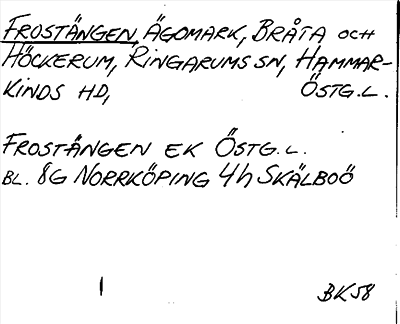 FROSTÄNGEN, ÄGOMARK, BRÅTA OCH
HÖCKERUM, RINGARUMS SN, HAMMAR-
KINDS HD, ÖSTG.L.
FROSTÄNGEN EK ÖSTG.L.
BL. 8G NORRKÖPING 4h SKÄLBOÖ
1 BK58